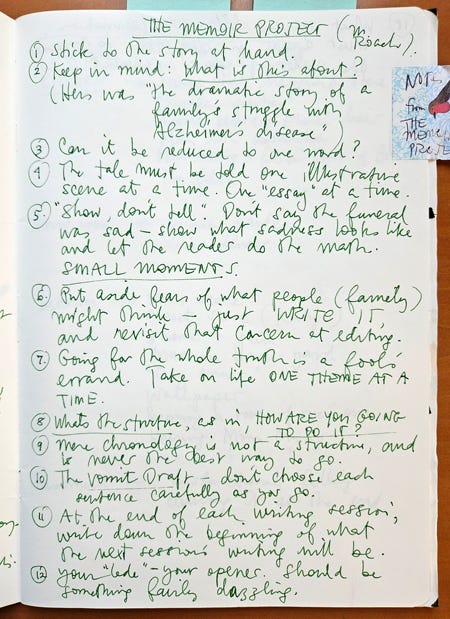 THE MEMOIR PROJECT (M. Roach).
① Stick to the story at hand.
② Keep in mind: What is this about?
(Hers was "the dramatic story of a
family's struggle with
Alzheimer's disease")
③ Can it be reduced to one word?
④ The tale must be told one illustrative
scene at a time. One "essay" at a time.
⑤ "Show, don't tell". Don't say the funeral
was sad – show what sadness looks like
and let the reader do the math.
SMALL MOMENTS.
⑥ Put aside fears of what people (family)
might think – just WRITE IT,
and revisit that concern at editing.
⑦ Going for the whole truth is a fool's
errand. Take on life ONE THEME AT A
TIME.
⑧ What's the structure, as in, HOW ARE YOU GOING
TO DO IT?
⑨ Mere chronology is not a structure, and
is never the best way to go.
⑩ The vomit Draft – don't choose each
sentence carefully as you go.
⑪ At the end of each writing session,
write down the beginning of what
the next session's writing will be.
⑫ your "lede" – your opener. Should be
something fairly dazzling.
from
THE